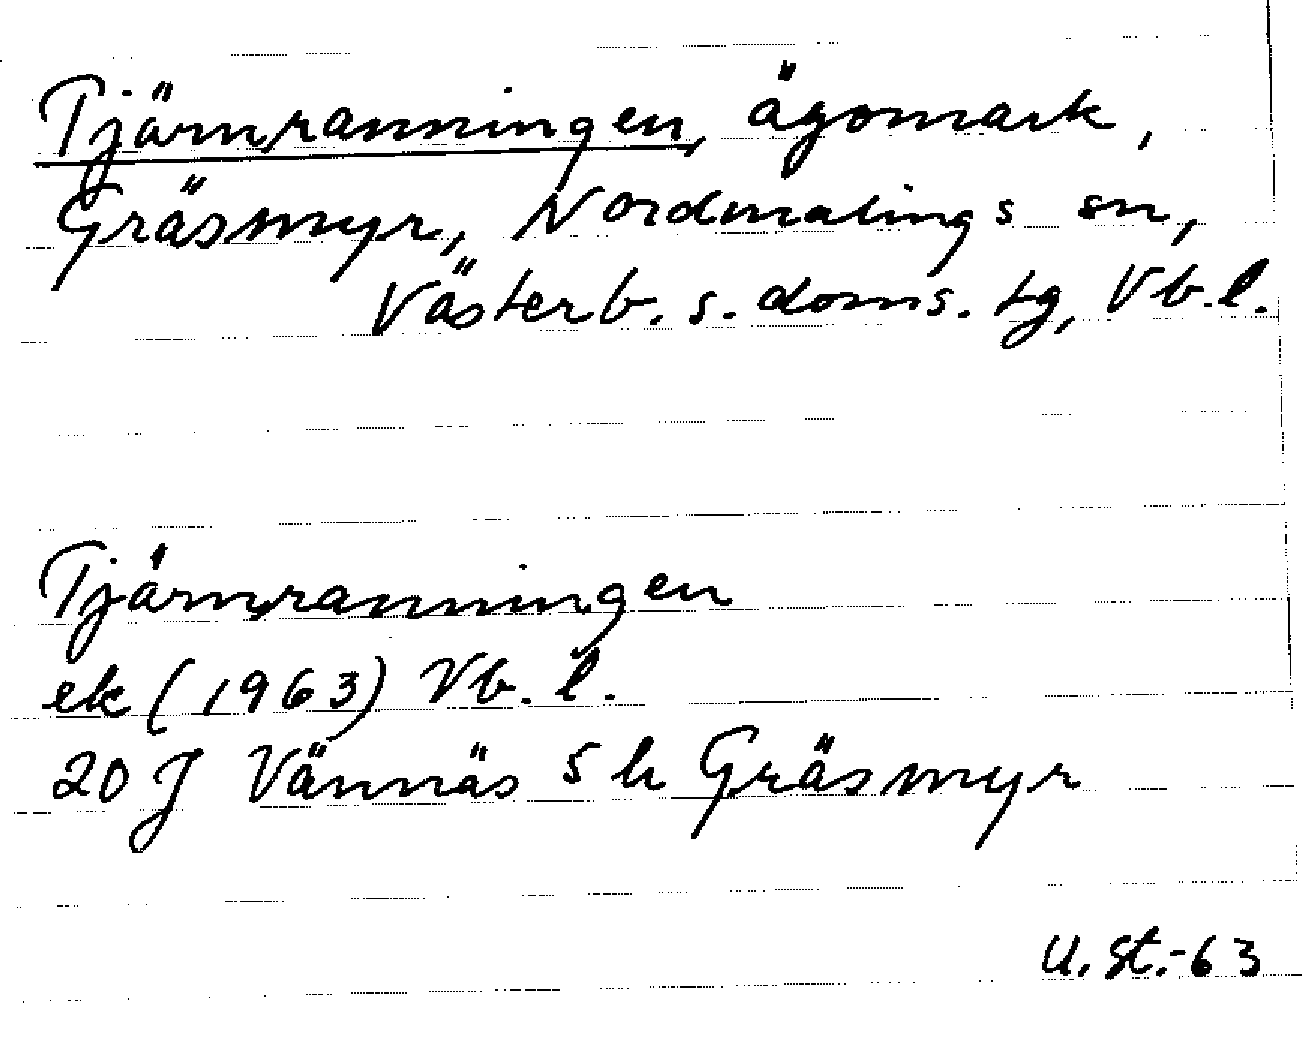 Tjärnranningen, ägomark,
Gräsmyr, Nordmalings sn,
Västerb. s. doms. tg, Vb. l.
Tjärnranningen
ek (1963) Vb. l.
20 J Vännäs 5 h Gräsmyr
U. St. -63